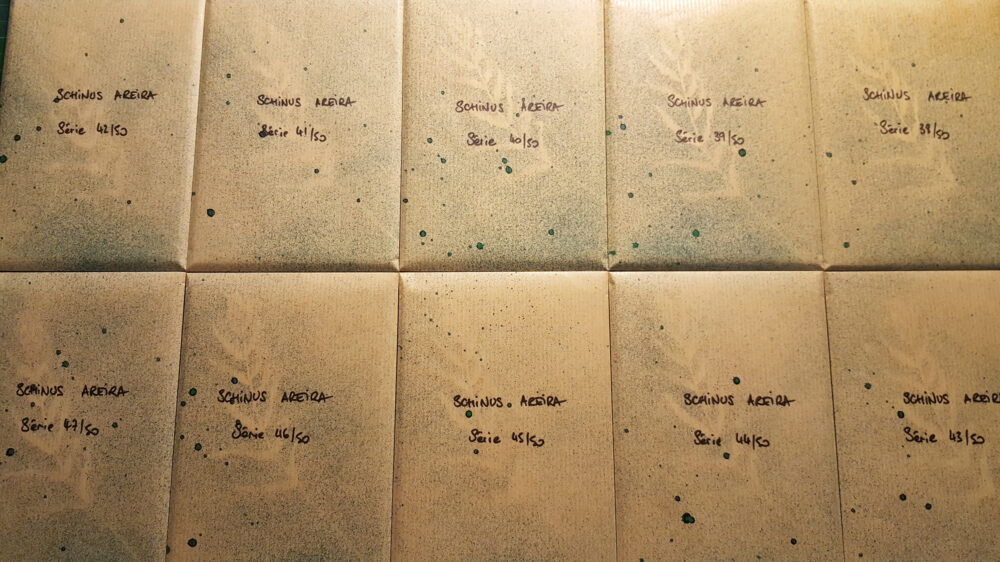 SCHINUS AREIRA
Série 42/50
SCHINUS AREIRA
Série 41/50
SCHINUS AREIRA
Série 40/50
SCHINUS AREIRA
Série 39/50
SCHINUS AREIRA
Série 38/50
SCHINUS AREIRA
Série 47/50
SCHINUS AREIRA
Série 46/50
SCHINUS AREIRA
Série 45/50
SCHINUS AREIRA
Série 44/50
SCHINUS AREIR
Série 43/50